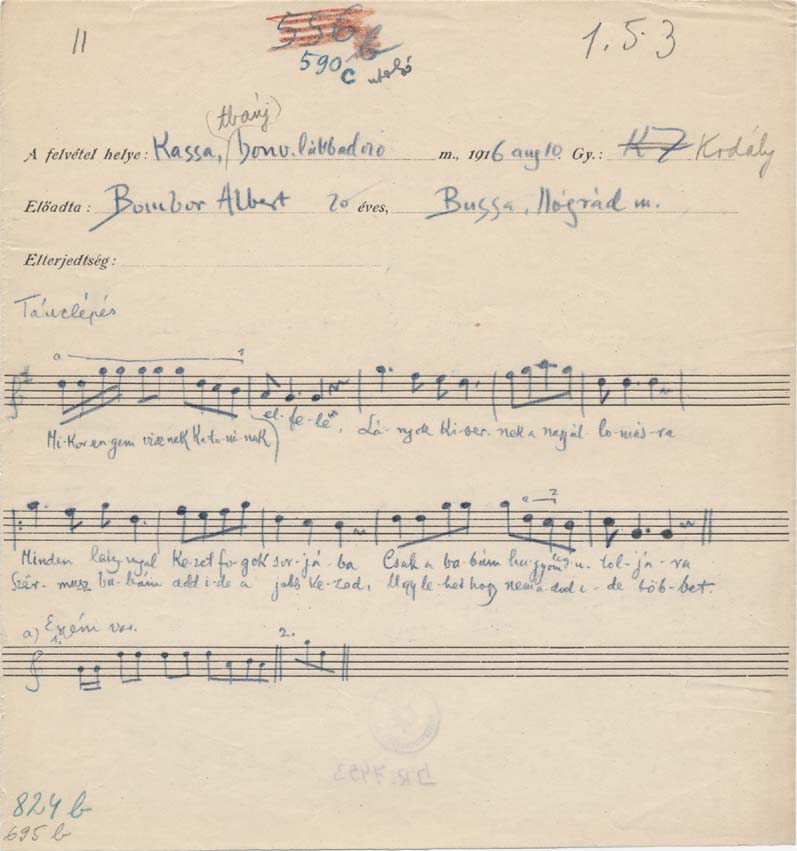 11
556 b
1.5.3
590 c utolsó
tbánj
A felvétel helye: Kassa, honv. lábbadozó m., 1916 aug 10. Gy.: K7 Kodály
Előadta: Bombor Albert 20 éves, Bussa, Nógrád m.
Elterjedtség:
Tánclépés
a 1
Mi-kor en-gem visznek Ka-to-ná-nak el-fe-lé, Lá-nyok ki-sér-nek a nagyál-lo-más-ra
a 2
Minden lány-nyal Ke-zet fo-gok sor-já-ba Csak a ba-bám hu-gyom u-tol-já-ra
ba-bám add i-de a jobb ke-zed, Ugy le-het hogy nem a-dod i-de töb-bet.
a) Eszém var.
1. 2.
824 b
695 b